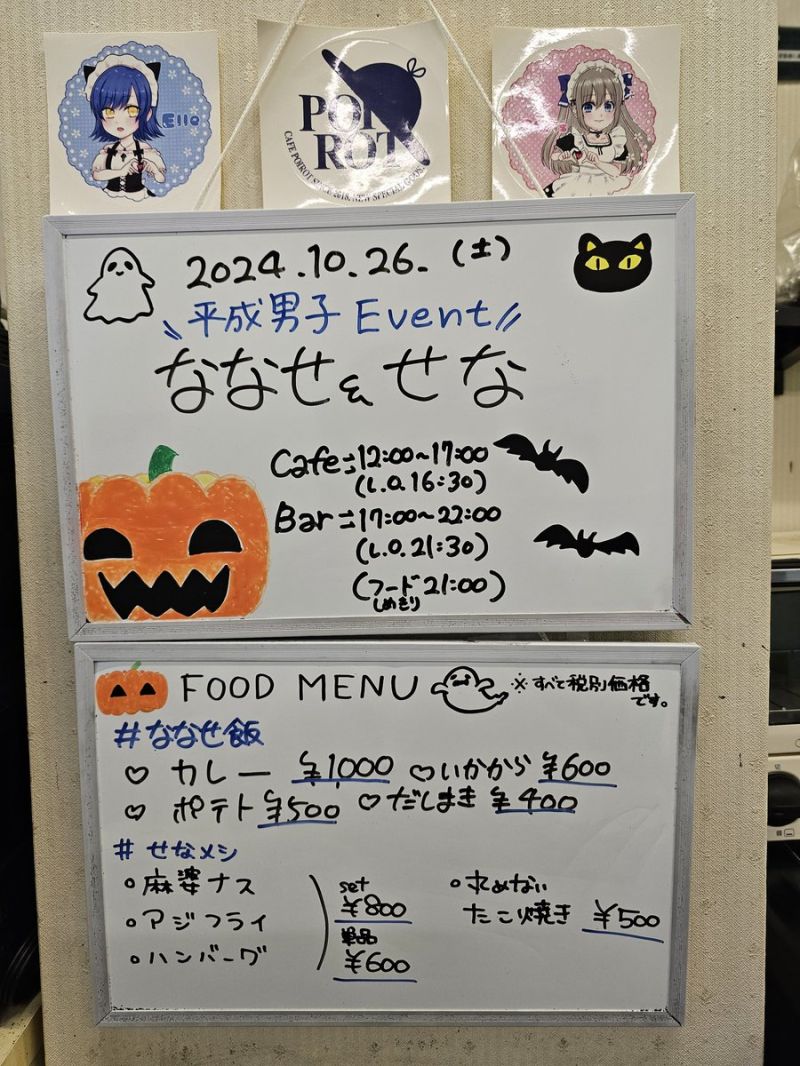 Ello
POIROT
CAFE POIROT SINCE 2018. NEW SPECIAL GOODS
2024.10.26.(土)
平成男子 Event
ななせ&せな
Cafe:12:00~17:00
(L.O.16:30)
Bar:17:00~22:00
(L.O.21:30)
(フード21:00)
しめきり
FOOD MENU ※すべて税別価格
です。
#ななせ飯
♡カレー ¥1000 ♡いかから ¥600
♡ポテト ¥500 ♡だしまき ¥400
#せなメシ
○麻婆ナス
○アジフライ
○ハンバーグ
set
¥800
単品
¥600
○丸めない
たこ焼き ¥500